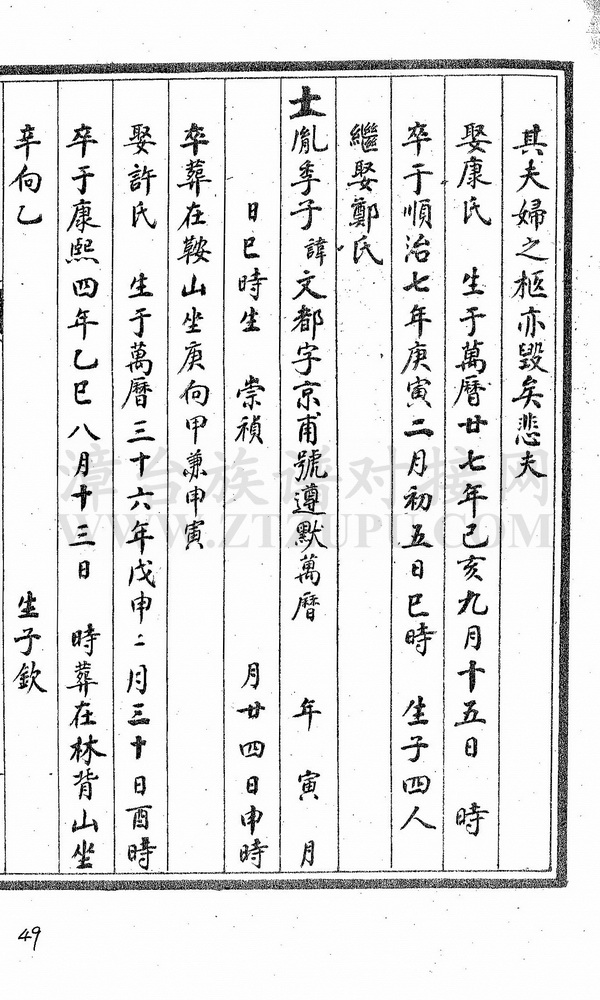 其夫婦之柩亦毀矣悲夫
娶康氏　生于萬曆廿七年己亥九月十五日　時
卒于順治七年庚寅二月初五日巳時　生子四人
繼娶鄭氏
士胤季子諱文都字京甫號遵默萬曆　年　寅　月
日巳時生　崇禎　月廿四日申時
卒葬在鞍山坐庚向甲兼申寅
娶許氏　生于萬曆三十六年戊申二月三十日酉時
卒于康熙四年乙巳八月十三日　時葬在林背山坐
辛向乙　生子欽
49
漳台族谱对接网
WWW.ZTZUPU.COM